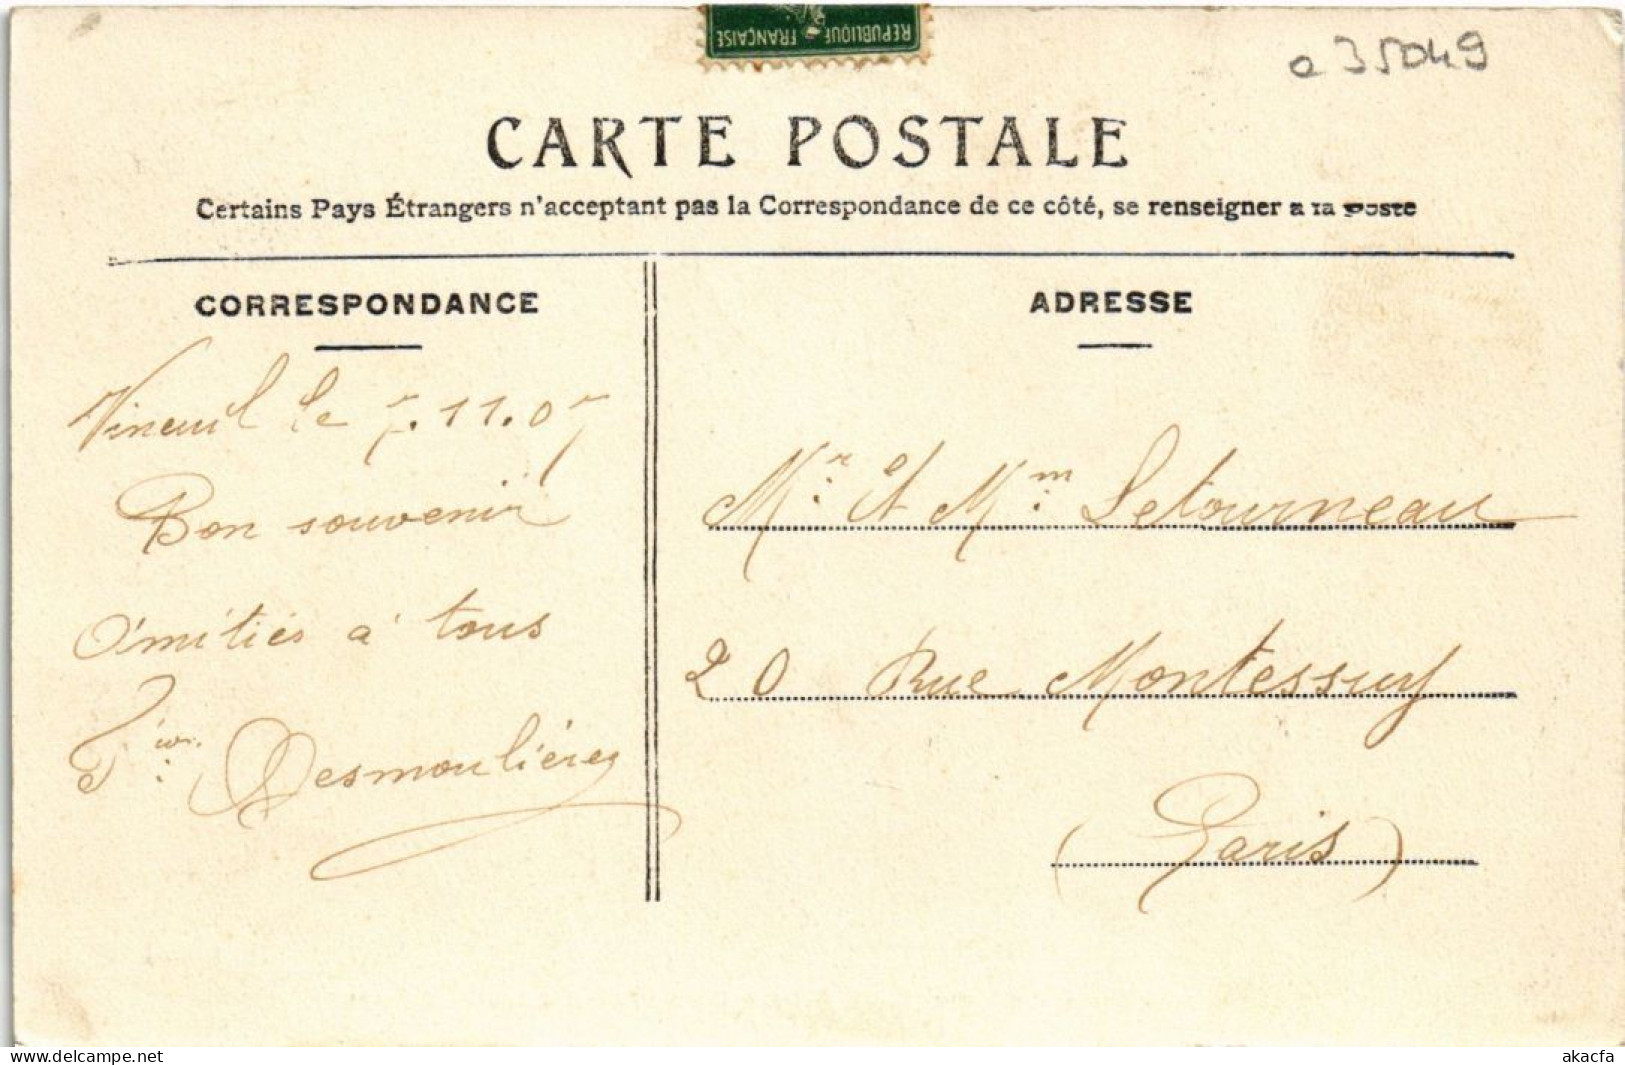 REPUBLIQUE FRANÇAISE
a 35049
CARTE POSTALE
Certains Pays Étrangers n'acceptant pas la Correspondance de ce côté, se renseigner a la poste
CORRESPONDANCE
Vineuil le 7.11.07
Bon souvenir
Amitiés à tous
Desmoulières
ADRESSE
Mr. et Mm. Letourneau
20 Rue Montessuy
(Paris)
delcampe.net
akacfa